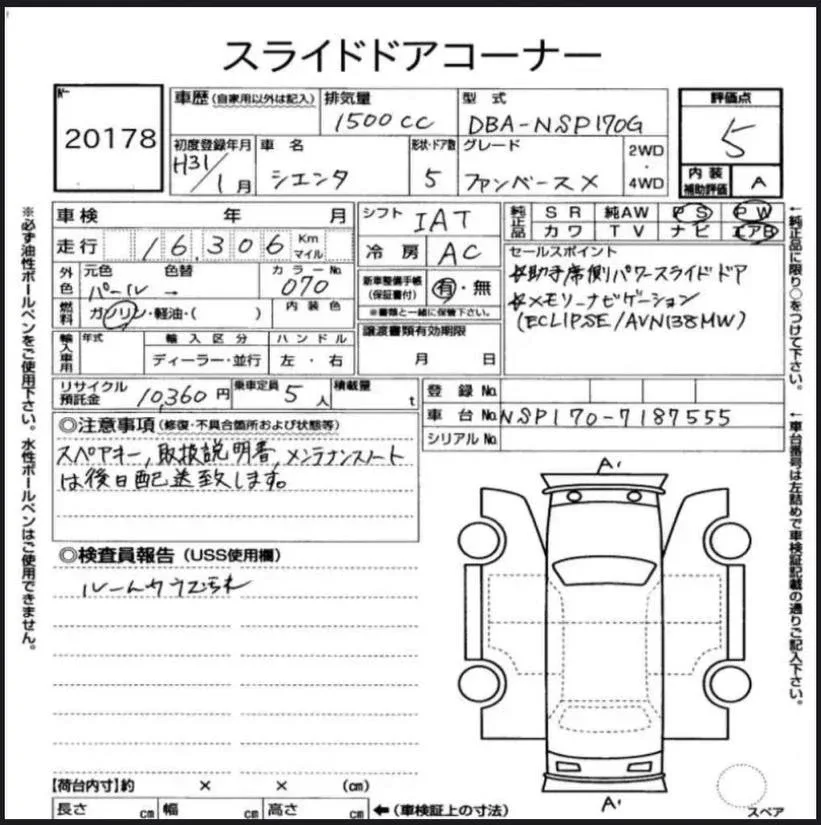 スライドドアコーナー
№
20178
車歴 (自家用以外は記入)
排気量
1500cc
型式
DBA-NSP170G
評価点
5
内装
補助評価
A
初度登録年月
H31/1月
車名
シエンタ
形状・ドア数
5
グレード
ファンベースX
2WD
・
4WD
車検 年 月
シフト
IAT
純正品
SR 純AW PS PW
カワ TV ナビ エアB
走行 16,306 Km
マイル
冷房
AC
セールスポイント
★助手席側パワースライドドア
★メモリーナビゲーション
(ECLIPSE/AVN138MW)
外色
元色 色替
パール →
カラーNo.
070
新車整備手帳
(保証書付)
有・無
※書類と一緒に保管下さい。
燃料
ガソリン・軽油・( )
内装色
譲渡書類有効期限
月 日
輸入車用
年式
輸入区分
ディーラー・並行
ハンドル
左・右
リサイクル
預託金
10,360円
乗車定員
5人
積載量
t
登録No.
車台No. NSP170-7187555
シリアルNo.
◎注意事項(修復・不具合箇所および状態等)
スペアキー,取扱説明書,メンテナンスノート
は後日配送致します。
◎検査員報告(USS使用欄)
ルーム内ウス汚れ
A'
A'
【荷台内寸】約 × × (㎝)
長さ ㎝ 幅 ㎝ 高さ ㎝ ←(車検証上の寸法)
スペア
※必ず油性ボールペンをご使用下さい。水性ボールペンはご使用できません。
←純正品に限り○をつけて下さい。
←車台番号は左詰めで車検証記載の通りご記入下さい。